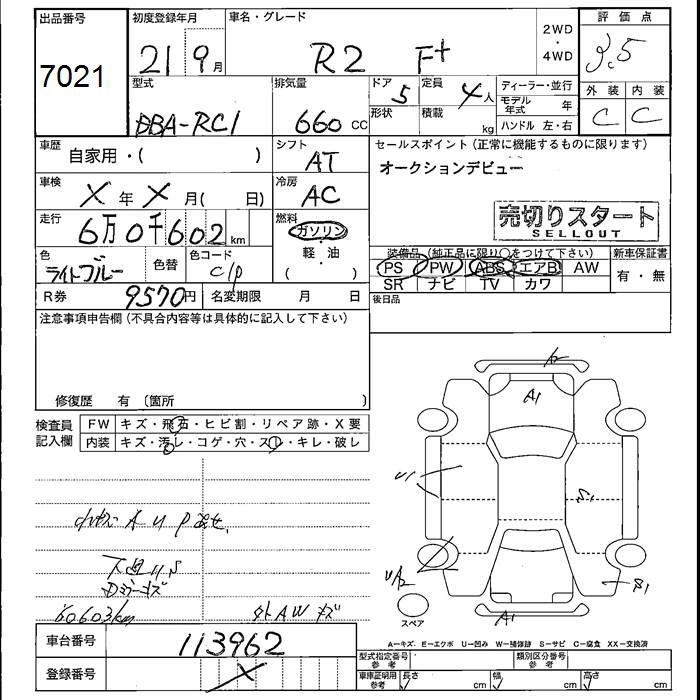 出品番号 7021
初度登録年月 21 9月
車名・グレード R2 F+
2WD・4WD
評価点 3.5
型式 DBA-RC1
排気量 660 CC
ドア 5
形状
定員 4人
積載 kg
ディーラー・並行
モデル年式 年
ハンドル 左・右
外装 内装
C C
車歴 自家用・( )
シフト AT
セールスポイント(正常に機能するものに限ります)
オークションデビュー
車検 X年 X月( 日)
冷房 AC
売切りスタート
SELLOUT
走行 6万0千602km
燃料 ガソリン・軽・油
( )
色 ライトブルー 色替
色コード c/p
装備品(純正品に限り〇をつけて下さい)
PS PW ABS エアB AW
SR ナビ TV カワ
新車保証書
有・無
後日品
R券 9570円
名変期限 月 日
注意事項申告欄(不具合内容等は具体的に記入して下さい)
修復歴 有 〔箇所 〕
検査員記入欄
FW キズ・飛石・ヒビ割・リペア跡・X要
内装 キズ・汚レ・コゲ・穴・スレ・キレ・破レ
A U P
60603km
外AWキズ
A1
U1
S1
U/2
S1
A1
スペア
A-キズ E-エクボ U-凹み W-補修跡 S-サビ C-腐食 XX-交換済
車台番号 113962
登録番号 X
型式指定番号 参考
類別区分番号 参考
車庫証明用 参考
長さ cm 幅 cm 高さ cm